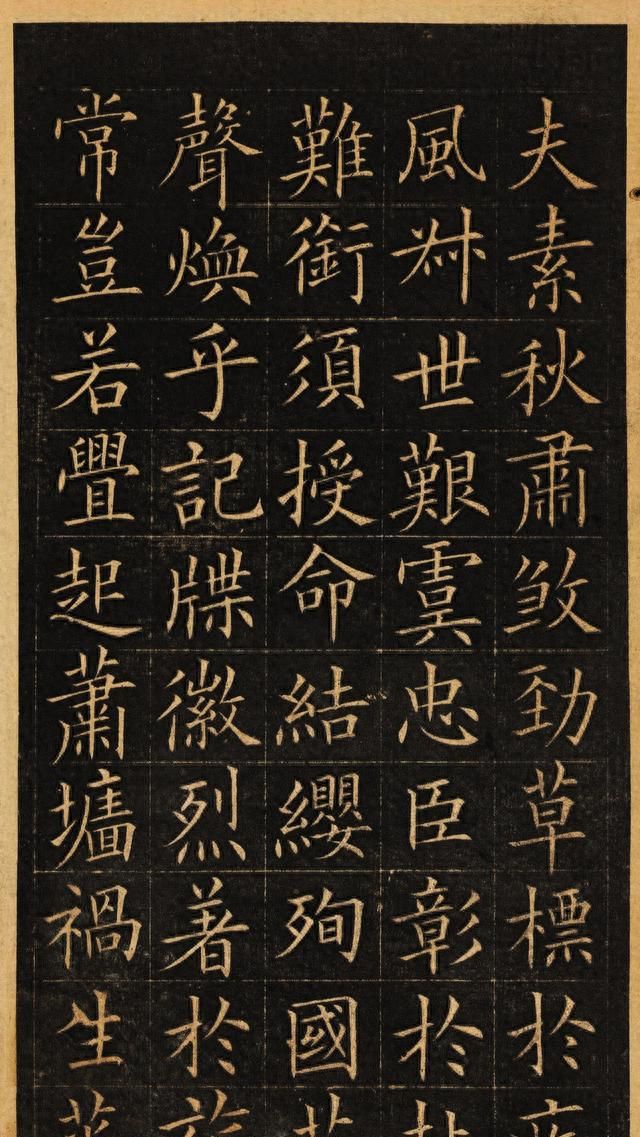 夫素秋肅煞勁草標於
風叔世艱虞忠臣彰於
難銜須授命結纓殉國
聲煥乎記牒徽烈著於
常豈若舋起蕭墻禍生